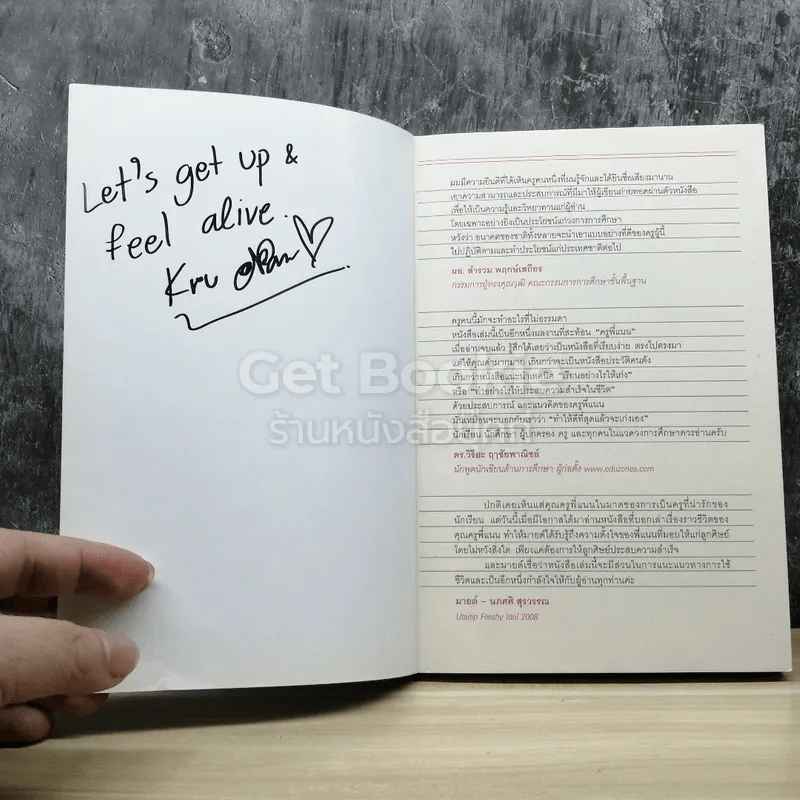 Let's get up &
feel alive.
Kru
ผมมีความยินดีที่ได้เห็นครูคนหนึ่งที่ผมรู้จักและได้ยินชื่อเสียงมานาน
เอาความสามารถและประสบการณ์ที่มีมาให้ผู้เขียนถ่ายทอดผ่านตัวหนังสือ
เพื่อให้เป็นความรู้และวิทยาทานแก่ผู้อ่าน
โดยเฉพาะอย่างยิ่งเป็นประโยชน์แก่วงการการศึกษา
หวังว่า อนาคตของชาติทั้งหลายจะนำเอาแบบอย่างที่ดีของครูผู้นี้
ไปปฏิบัติตามและทำประโยชน์แก่ประเทศชาติต่อไป
ผอ. สำรวม พฤกษ์เสถียร
กรรมการผู้ทรงคุณวุฒิ คณะกรรมการการศึกษาขั้นพื้นฐาน
ครูคนนี้มักจะทำอะไรที่ไม่ธรรมดา
หนังสือเล่มนี้เป็นอีกหนึ่งผลงานที่สะท้อน "ครูพี่แนน"
เมื่ออ่านจบแล้ว รู้สึกได้เลยว่าเป็นหนังสือที่เรียบง่าย ตรงไปตรงมา
แต่ให้คุณค่ามากมาย เกินกว่าจะเป็นหนังสือประวัติคนดัง
เกินกว่าหนังสือแนะนำเทคนิค "เรียนอย่างไรให้เก่ง"
หรือ "ทำอย่างไรให้ประสบความสำเร็จในชีวิต"
ด้วยประสบการณ์ และแนวคิดของครูพี่แนน
มันเหมือนจะบอกกับเราว่า "ทำให้ดีที่สุดแล้วจะเก่งเอง"
นักเรียน นักศึกษา ผู้ปกครอง ครู และทุกคนในแวดวงการศึกษาควรอ่านครับ
ดร.วิริยะ ฤาชัยพาณิชย์
นักพูดนักเขียนด้านการศึกษา ผู้ก่อตั้ง www.eduzones.com
ปกติเคยเห็นแต่คุณครูพี่แนนในมาดของการเป็นครูที่น่ารักของ
นักเรียน แต่วันนี้เมื่อมีโอกาสได้มาอ่านหนังสือที่บอกเล่าเรื่องราวชีวิตของ
คุณครูพี่แนน ทำให้มายด์ได้รับรู้ถึงความตั้งใจของพี่แนนที่มอบให้แก่ลูกศิษย์
โดยไม่หวังสิ่งใด เพียงแค่ต้องการให้ลูกศิษย์ประสบความสำเร็จ
และมายด์เชื่อว่าหนังสือเล่มนี้จะมีส่วนในการแนะแนวทางการใช้
ชีวิตและเป็นอีกหนึ่งกำลังใจให้กับผู้อ่านทุกท่านค่ะ
มายด์ – นภศศิ สุรวรรณ
Utaitip Freshy Idol 2008
Get Bookie
ร้านหนังสือบุ๊คกี้